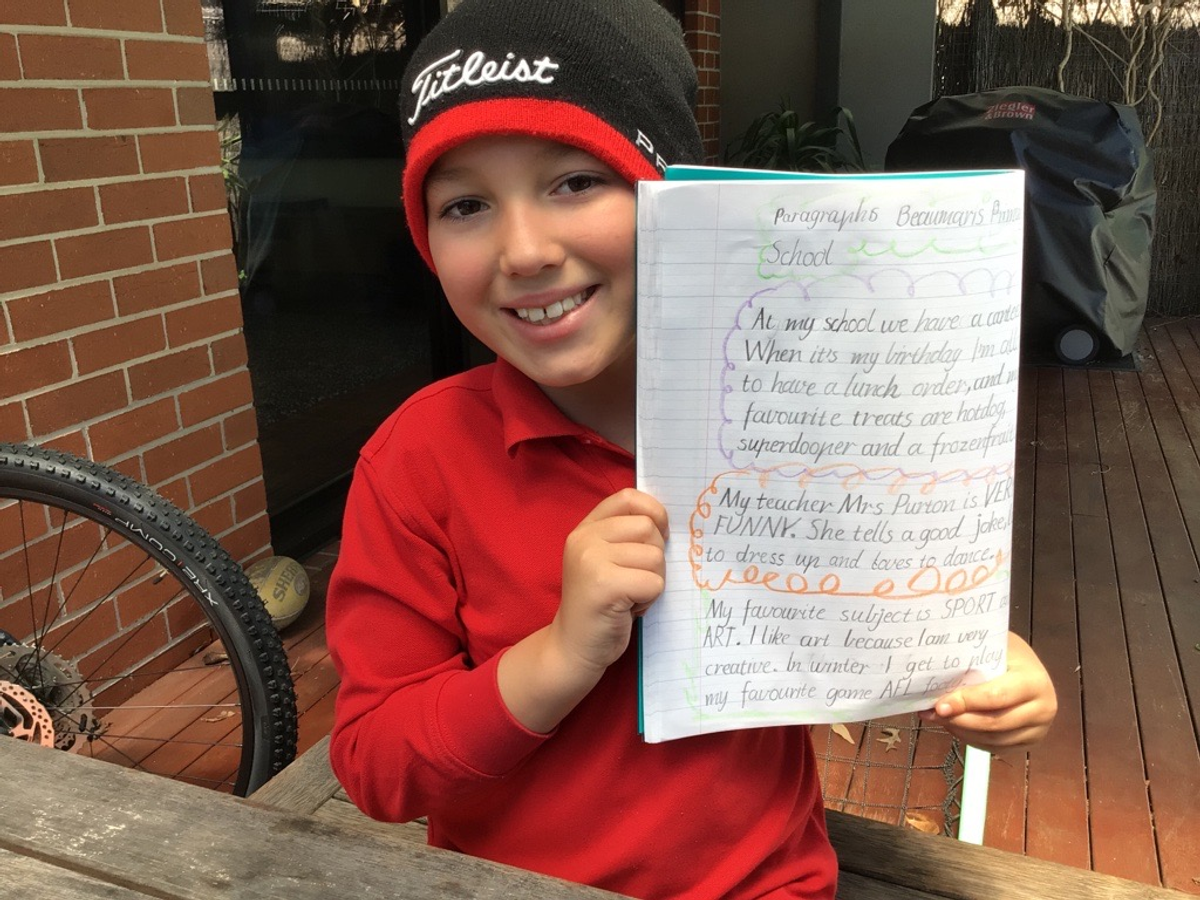 Titleist
Ziegler
& Brown
Paragraphs Beaumaris
School
At my school we have a
When it's my birthday I'm
to have a lunch order, and
favourite treats are hotdog,
superdooper and a frozenfruit
My teacher Mrs Purton is
FUNNY. She tells a good joke,
to dress up and loves to dance.
My favourite subject is SPORT
ART. I like art because I am very
creative. In winter I get to play
my favourite game AFL